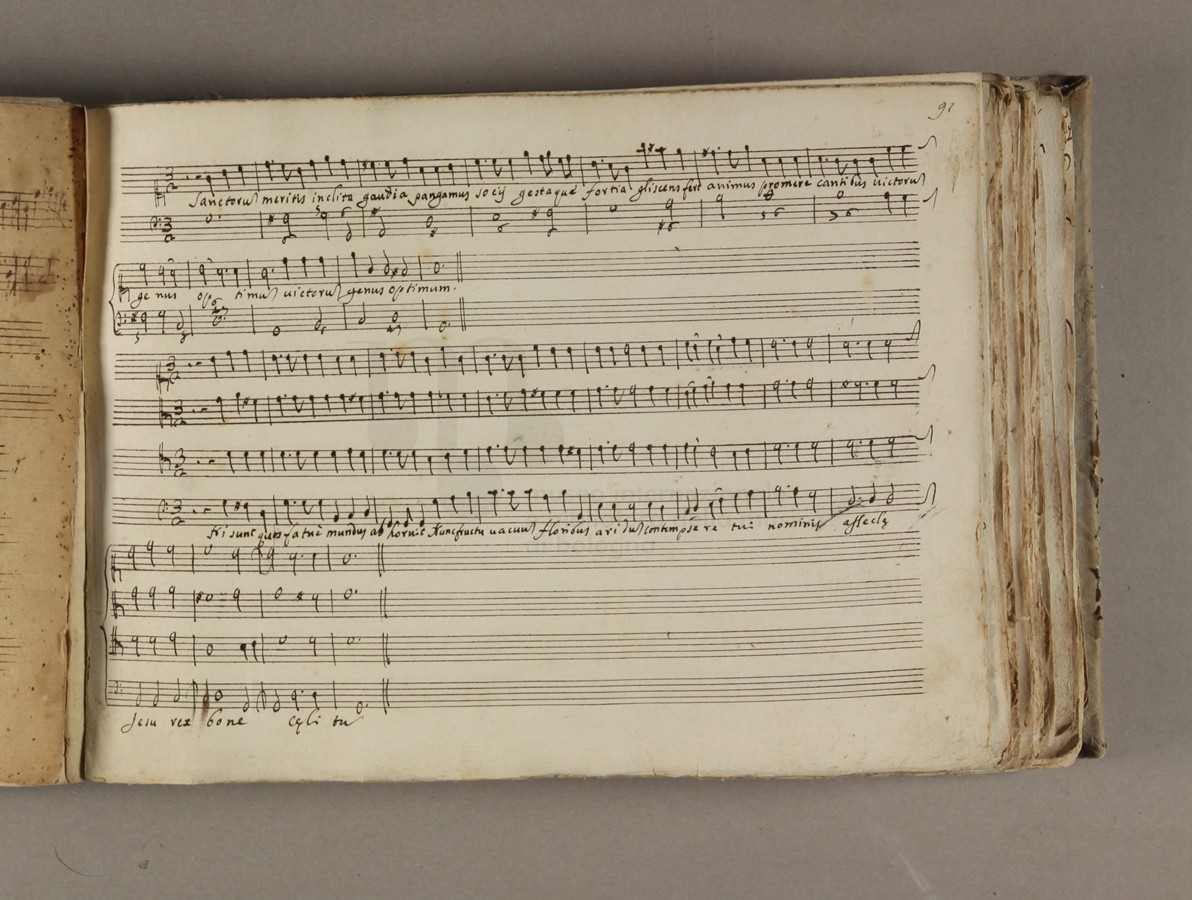 91
Sanctorum meritis inclita gaudia pangamus socij gestaque fortia gliscens fert animus promere cantibus victorum
genus op timum victorum genus optimum.
Hi sunt quos fatue mundus ab horruit Hunc fructu vacuum floribus aridum contempsere tui nominis asseclę
Jesu rex bone cęli tum